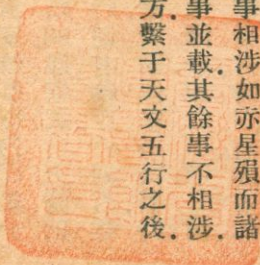 事相涉如亦星殞而諸
事並載.其餘事不相涉.
方.繫于天文五行之後.